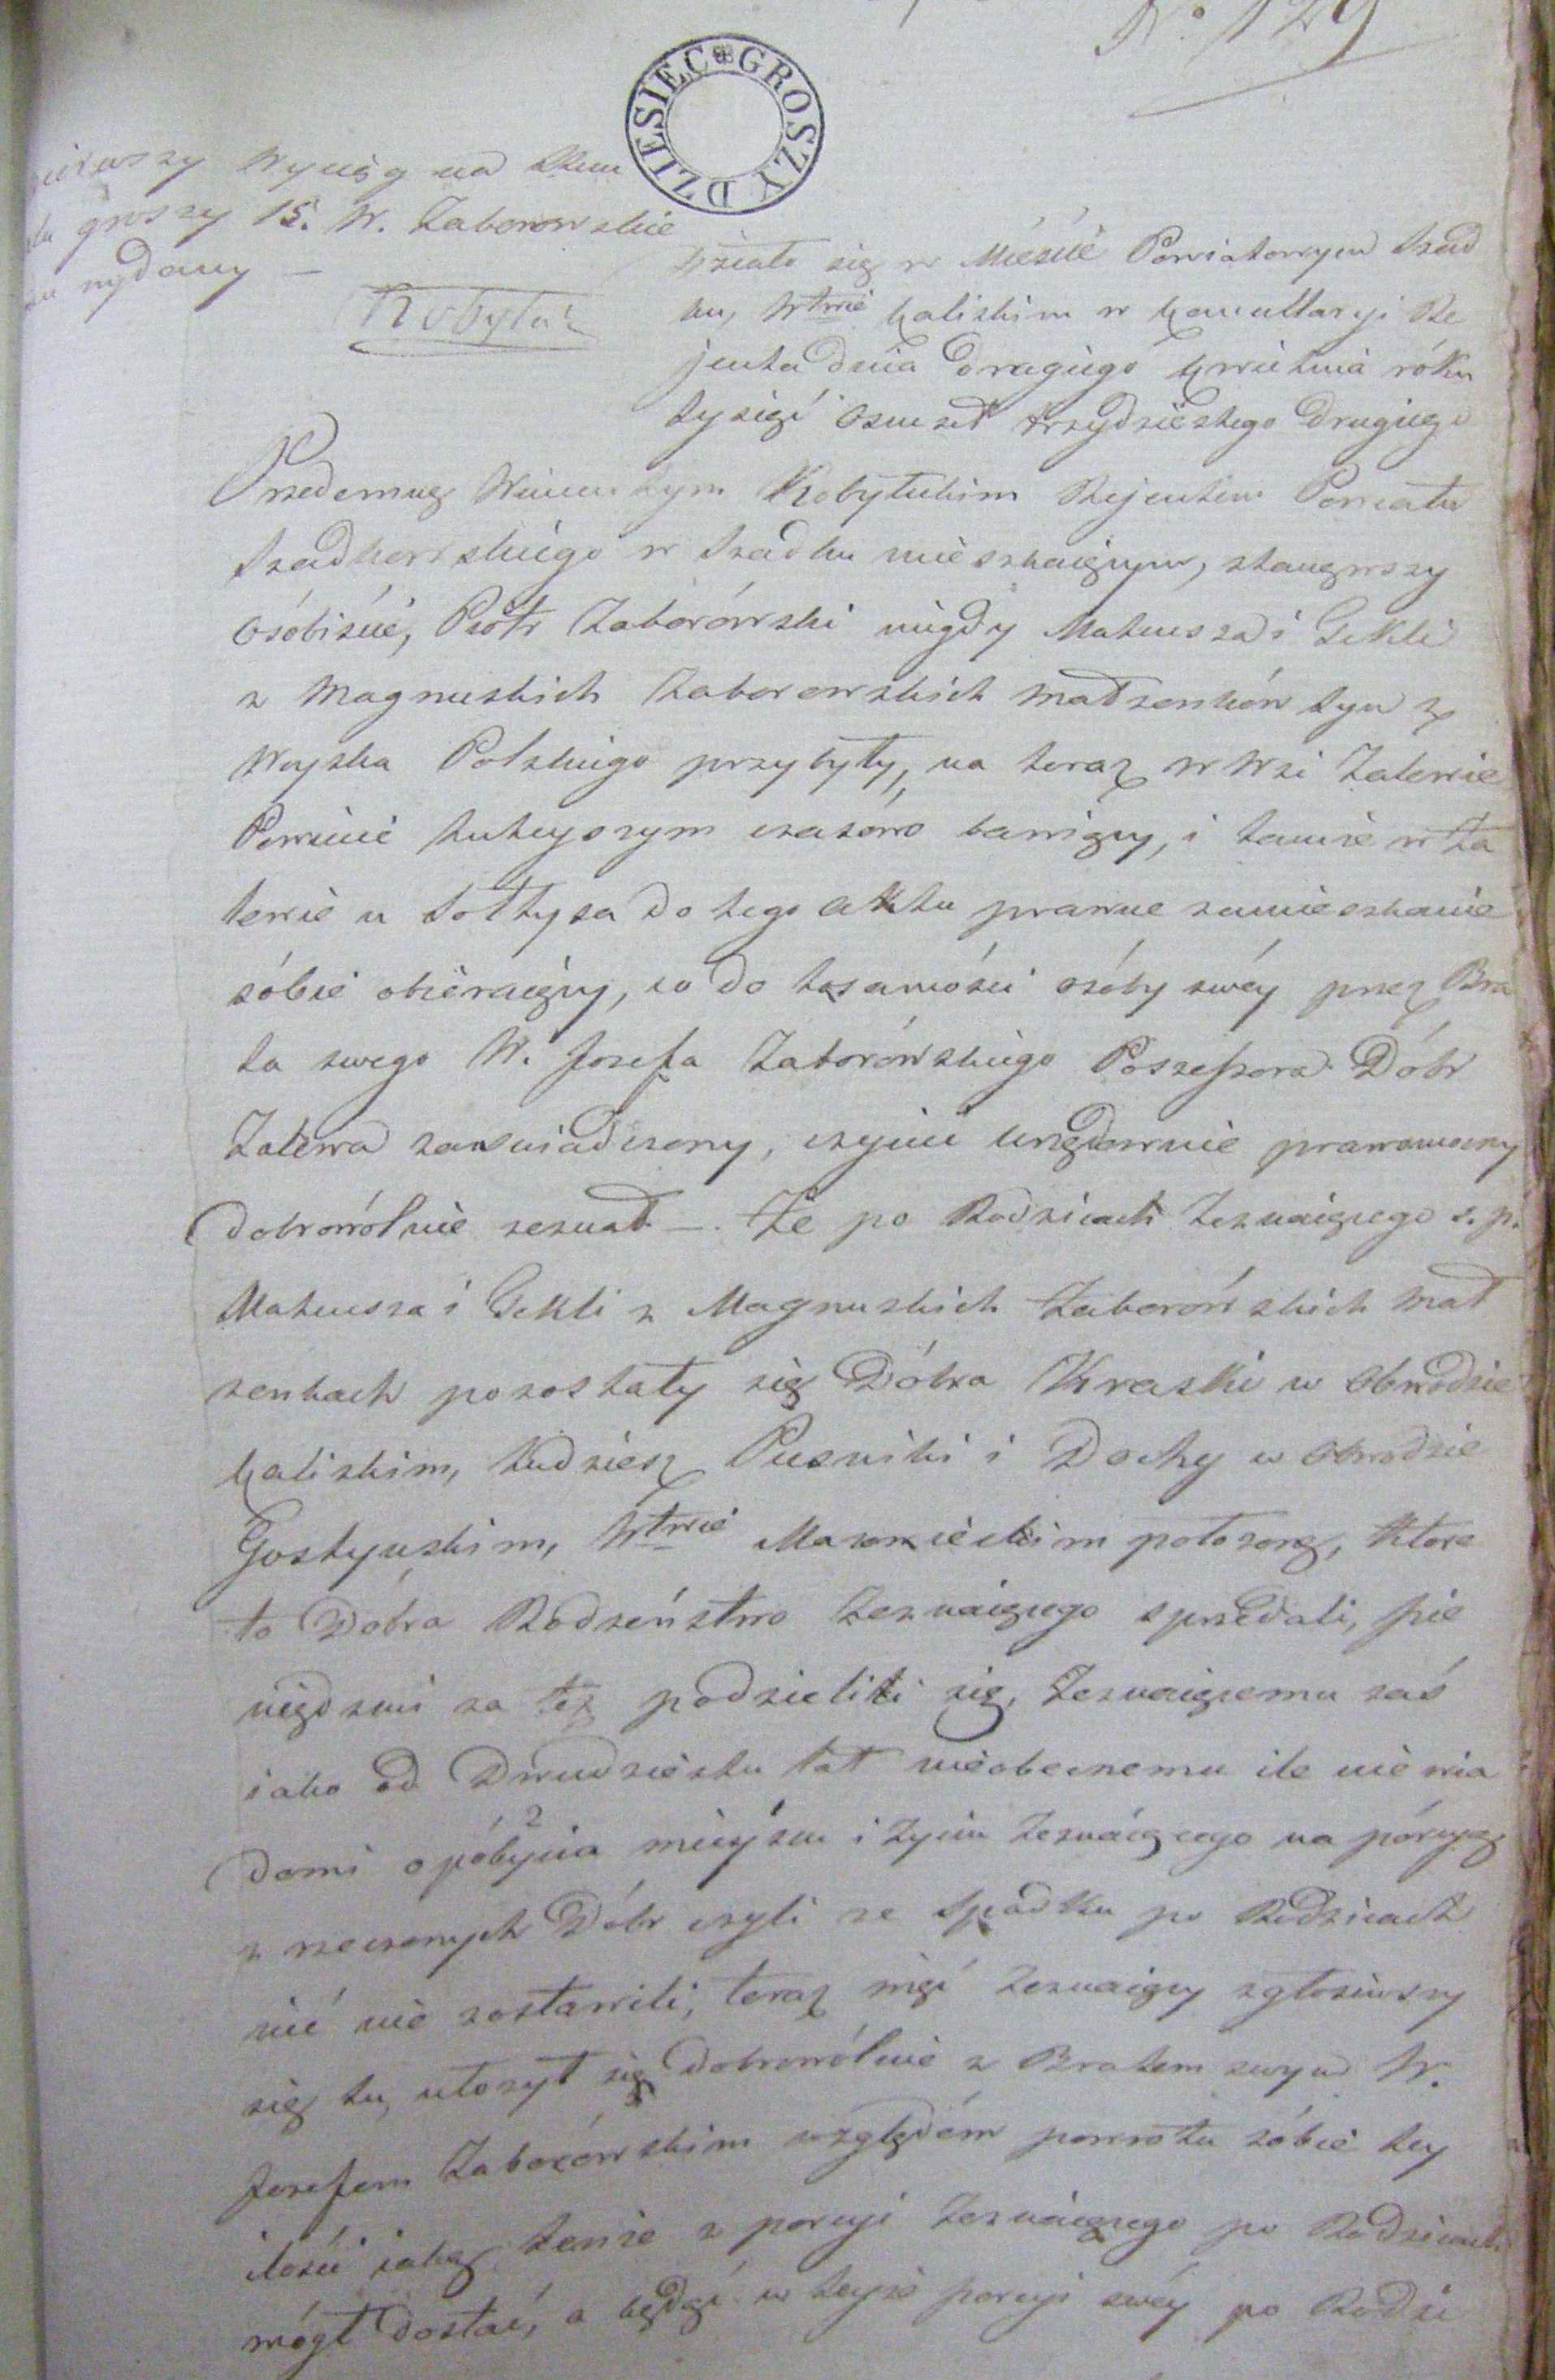 No. 129
DZIESIEC GROSZY
pierwszy Wyciąg na Stem
plu groszy 15. W. Zaborowskie
mu wydany —
Kobyłec
Działo się w Mieście Powiatowym Szad
ku, Wtwie Kaliskim w Kancellaryi Re
jenta dnia drugiego Kwietnia róku
tysiąć osmset trzydziestego drugiego
Przedemną Wincentym Kobyłeckim Rejentem Powiatu
Szadkowskiego w Szadku mieszkaiącym, stanąwszy
osóbiście, Piotr Zaborówski niegdy Mateusza i Tekli
z Magnuskich Zaborowskich małżonków syn z
Woyska Polskiego przybyły, na teraz w Wsi Zalewie
Powiecie tuteyszym czasowo bawiący, i tamże w Za
lewie u Sołtysa do tego Aktu prawne zamieszkanie
sóbie obieraiący, co do tosamości osóby swéy przez Bra
ta swego W. Jozefa Zaborówskiego Possessora Dóbr
Zalewa zaswiadczony, czynić urzędownie prawomocny
dobrowólnie zeznał —. Że po Rodzicach Zeznaiącego s. p.
Mateusza i Tekli z Magnuskich Zaborówskich Mał
żonkach pozostały się Dóbra Kraski w Obwodzie
Kaliskim, tudziesz Pusniki i Dochy w Obwodzie
Gostyńskim, Wtwie Mazowieckim położone, które
to Dobra Rodzeństwo Zeznaiącego sprzedali, pie
niędzmi za też podzielili się, Zeznaiącemu zaś
iako od Dwudziestu lat nieobecnemu ile nie wia
domi o póbycia 2 mieyscu i życiu Zeznaiącego na pórcyą
z rzeczonych Dóbr czyli ze Spadku po Rodzicach
nić nie zostawili, teraz więć Zeznaiący zgłosiwszy
się tu, ułożył się dobrowólnie z Bratem swym W.
Jozefem Zaborówskim względém powrotu sóbie tey
ilości iaką tenże z porcyi Zeznaiącego po Rodzicach
mógł dostać, a będąć w teyże porcyi swéy po Rodzi